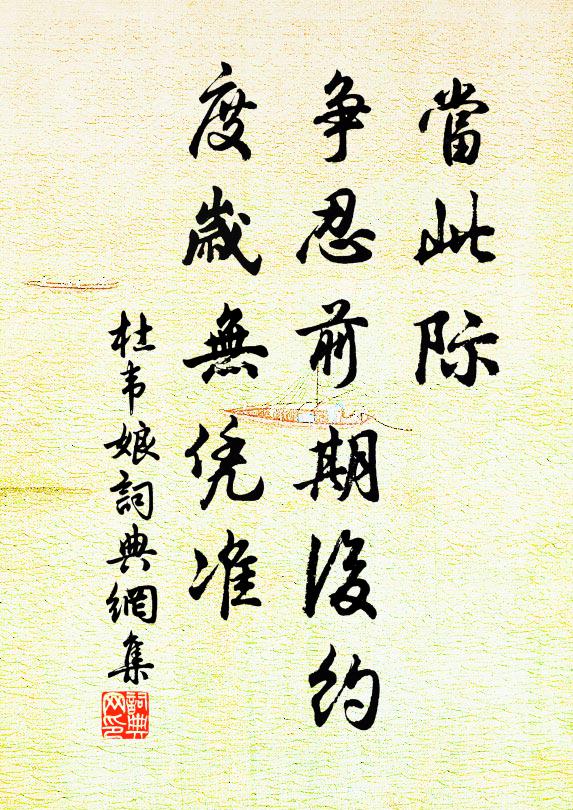 當此际
争忍前期後約
度歲無凭准
杜韦娘詞典網集
詞典网印